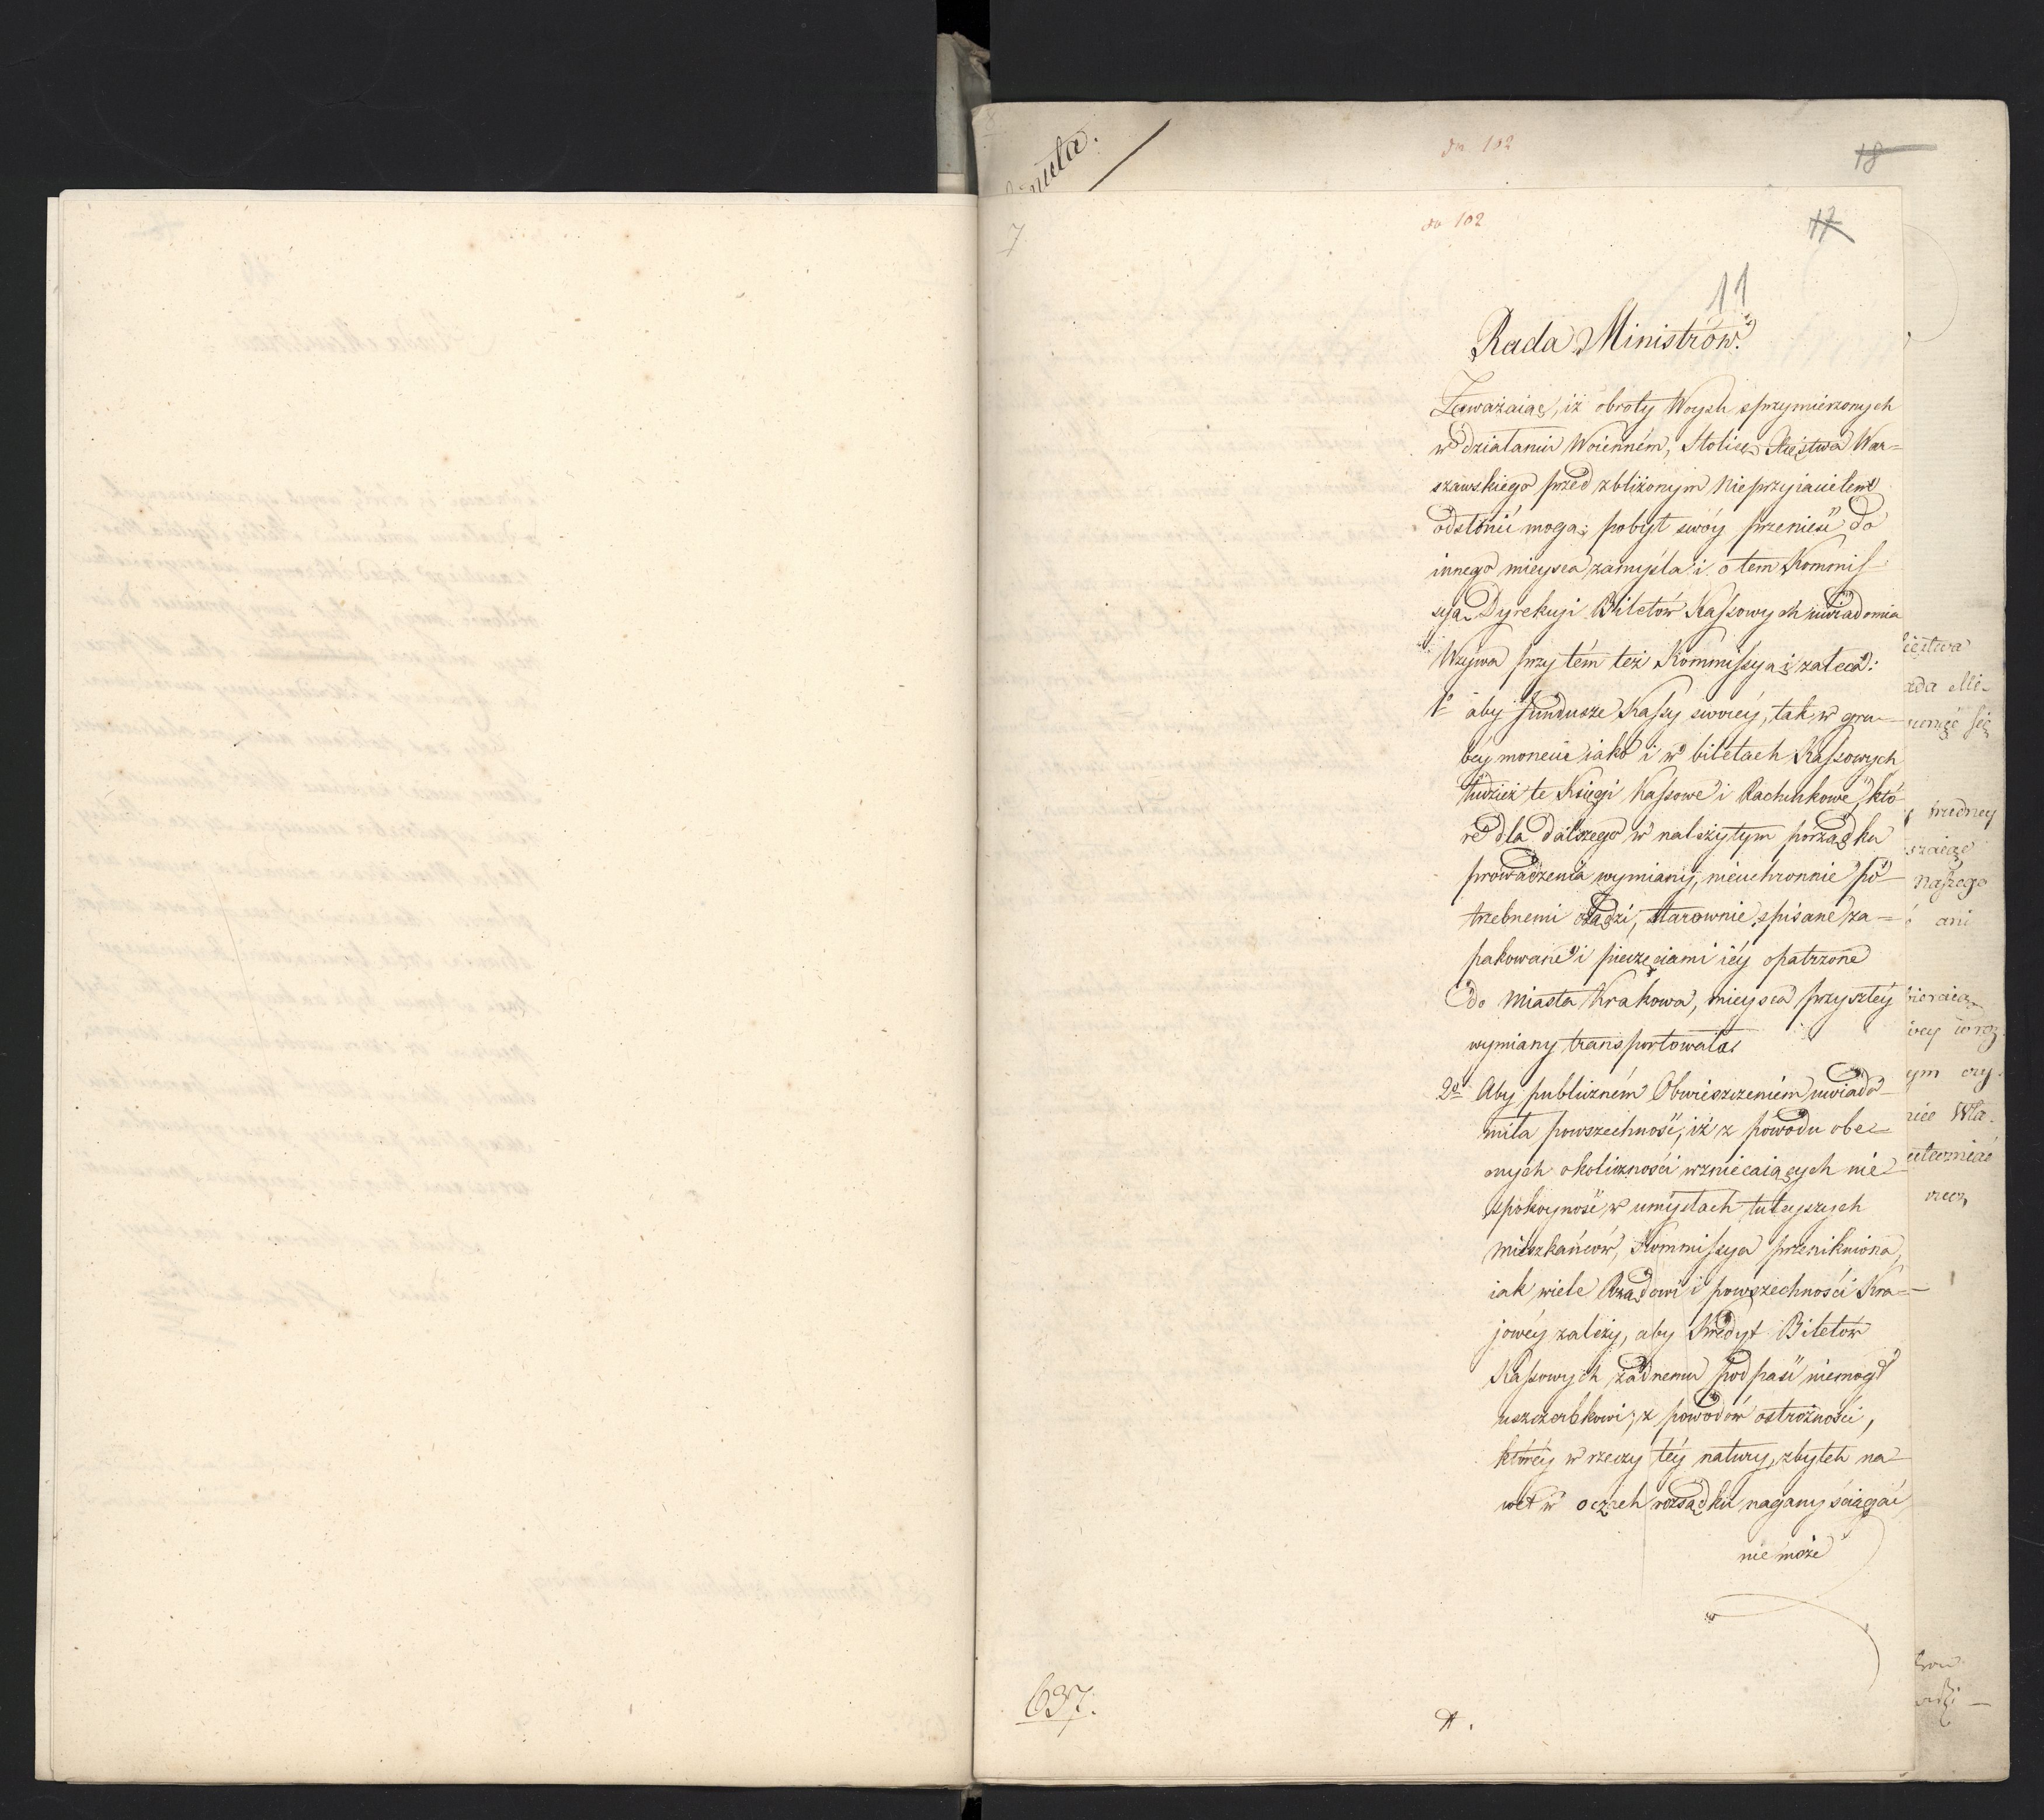 do 102
18
do 102
17
7
11
Rada Ministrów.
Zważaiąc, iż obroty Woysk sprzymierzonych
w działaniu Woienném, Stolicę Xięstwa War=
szawskiego przed zbliżonym Nieprzyiacielem
odsłonić mogą; pobyt swóy przenieść do
innego mieysca zamyśla i o tem Kommis
syą Dyrekcyi Biletów Kassowych uwiadomia
Wzywa przytém też Kommissyą i zaleca:
1o aby fundusze Kassy swoiéy, tak w gru-
béy monecie iako i w biletach Kassowych
tudzież te Księgi Kassowe i Rachunkowe, któ-
re dla dalszego w należytym porządku
prowadzenia wymiany, nieuchronnie po-
trzebnemi osądzi, starownie spisane za=
pakowane i pieczęciami iéy opatrzone
do Miasta Krakowa, mieysca przyszłéy
wymiany transportowała.
2o Aby publiczném Obwieszczeniém uwiado-
miła powszechność, iż z powodu obe=
cnych okoliczności wzniecaiących nie-
spokoyność w umysłach tuteyszych
Mieszkańców, Kommissya przenikniona,
iak wiele Rządowi i powszechności Kra=
jowéy zależy, aby Kredyt Biletów
Kassowych żadnemu podpaść niemógł
uszczerbkowi; z powodów ostrożności,
któréy w rzeczy téy natury, zbytek na-
wet w oczach rozsądku nagany ściągać
nie może
637.